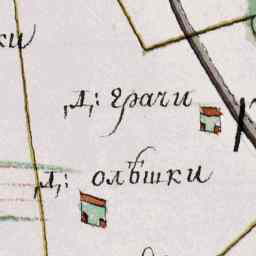 ки
Д: грачи
Д: олѣшки